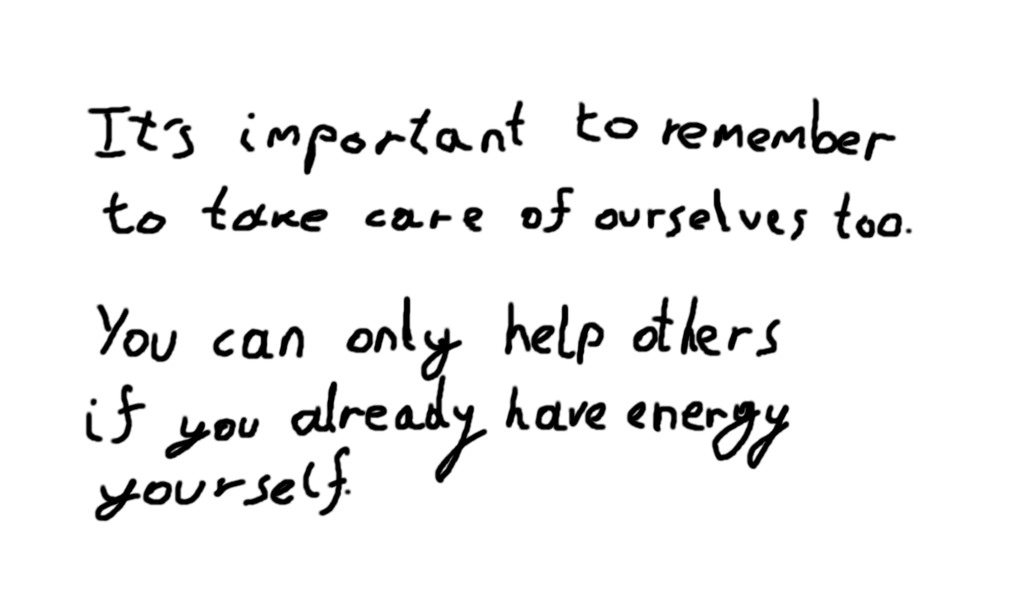 It's important to remember
to take care of ourselves too.
You can only help others
if you already have energy
yourself.